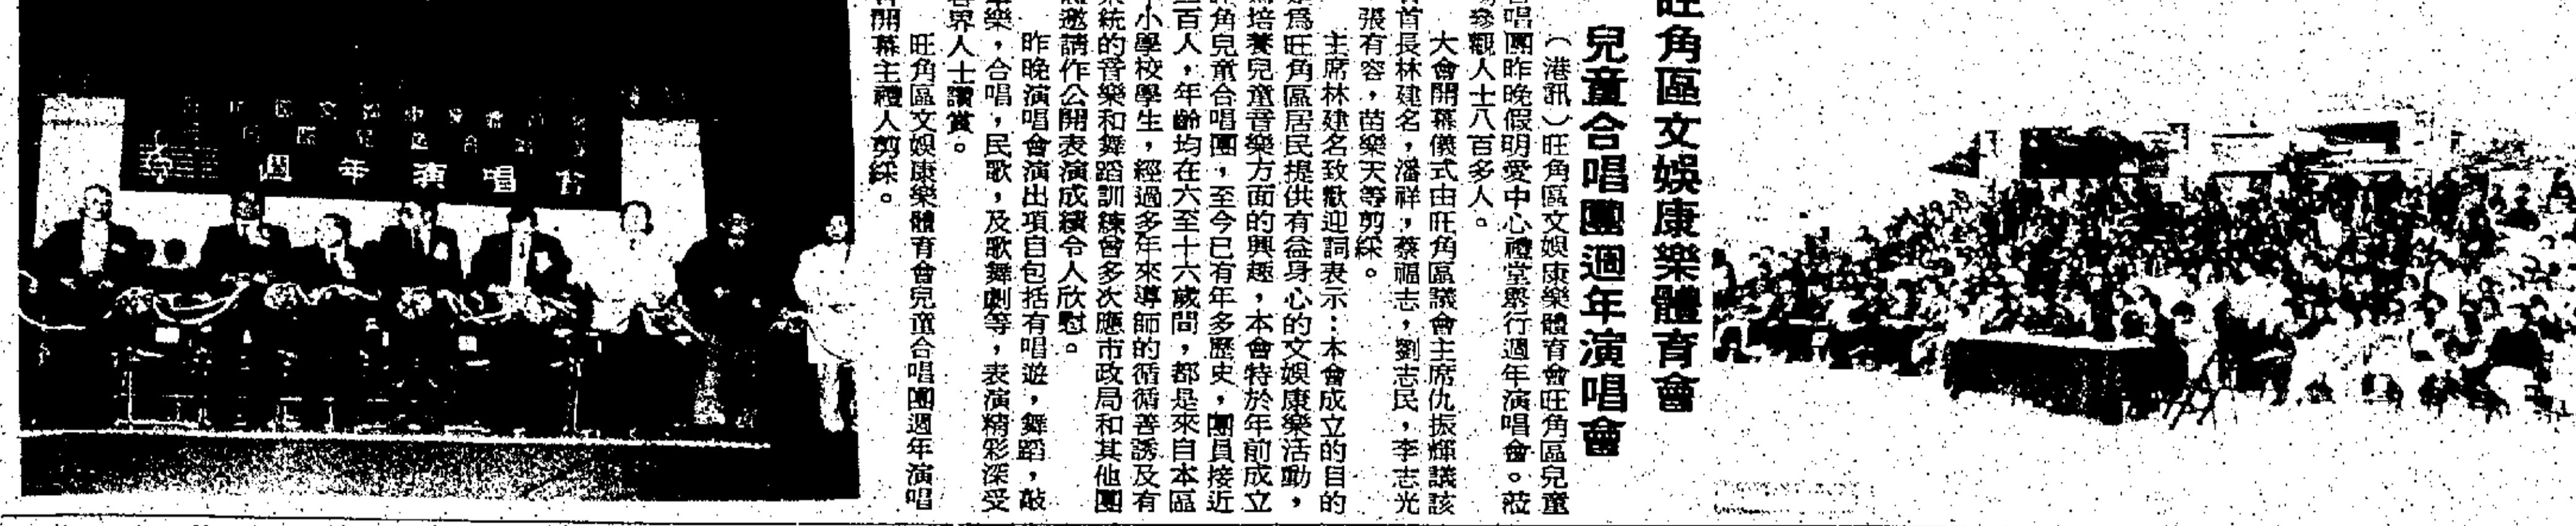 旺角區文娛康樂體育會
兒童合唱團週年演唱會
（港訊）旺角區文娛康樂體育會旺角區兒童
合唱團昨晚假明愛中心禮堂舉行週年演唱會。蒞
場參觀人士八百多人。
大會開幕儀式由旺角區議會主席仇振輝議該
首長林建名，潘祥，蔡福志，劉志民，李志光
張有容，苗樂天等剪綵。
主席林建名致歡迎詞表示：本會成立的目的
是爲旺角區居民提供有益身心的文娛康樂活動，
爲培養兒童音樂方面的興趣，本會特於年前成立
角兒童合唱團，至今已有年多歷史，團員接近
百人，年齡均在六至十六歲間，都是來自本區
小學校學生，經過多年來導師的循循善誘及有
系統的音樂和舞蹈訓練曾多次應市政局和其他團
邀請作公開表演成績令人欣慰。
昨晚演唱會演出項目包括有唱遊，舞蹈，敲
樂，合唱，民歌，及歌舞劇等，表演精彩深受
各界人士讚賞。
旺角區文娛康樂體育會兒童合唱團週年演唱
會開幕主禮人剪綵。
週年演唱會